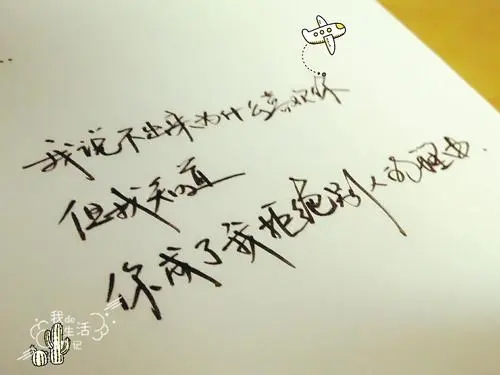 我说不出来为什么喜欢你
但我知道
你成了我拒绝别人的理由.
我de
生活
日记